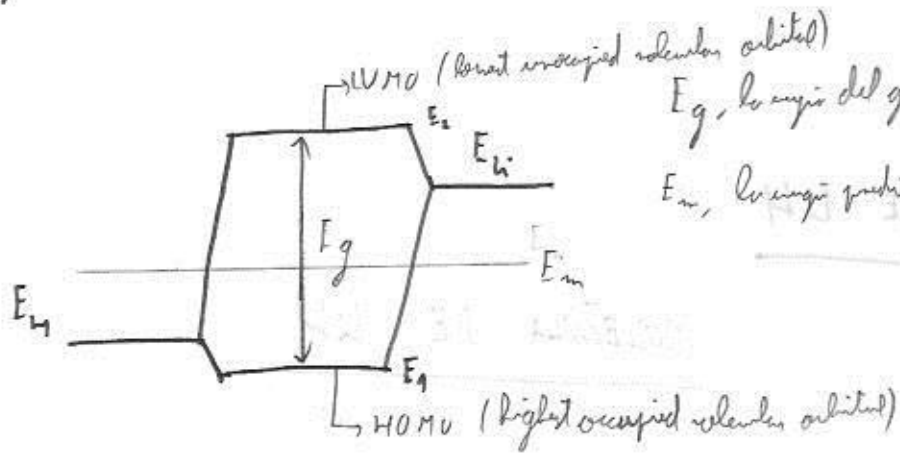 LUMO (lowest unoccupied molecular orbital)
E₂
E_g, la energía del g
E_Li
E_m, la energía
E_g
E_m
E_H
E₁
HOMO (highest occupied molecular orbital)